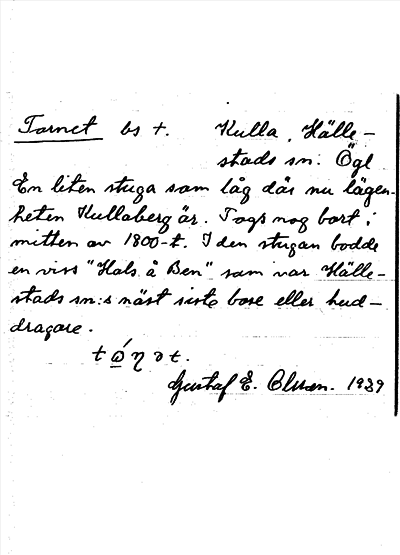 Tornet bs t. Kulla, Hälle-
stads sn: Ögl
En liten stuga som låg där nu lägen-
heten Kullaberg är. Togs nog bort i
mitten av 1800-t. I den stugan bodde
en viss "Hals å Ben" som var Hälle-
stads sn:s näst siste bose eller hud-
dragare.
Gustaf E. Olsson. 1939